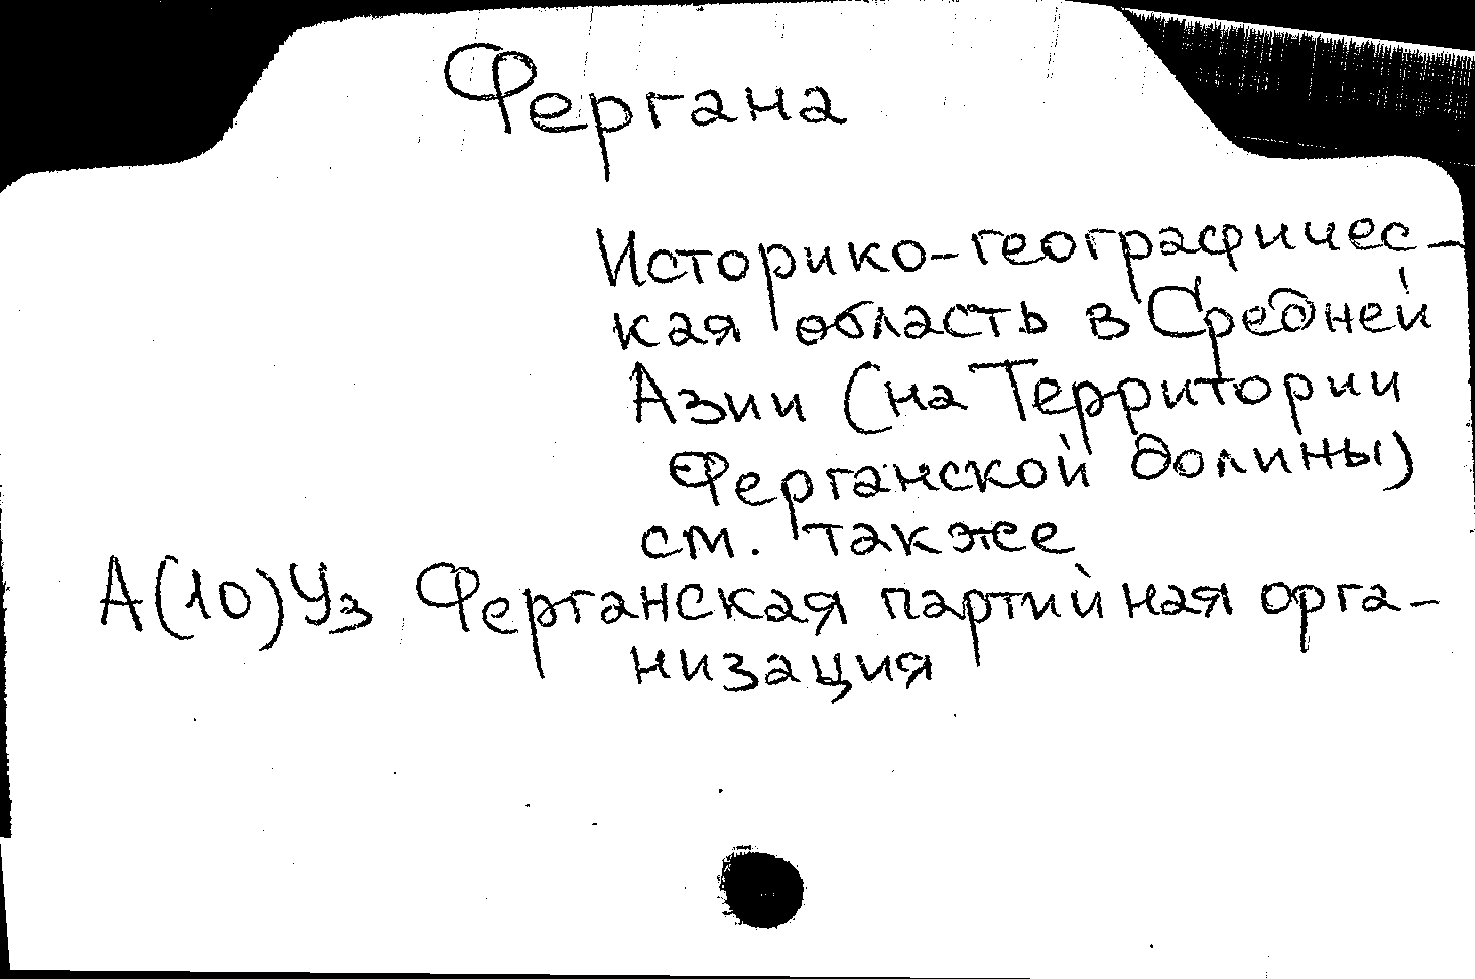 Фергана
Историко-географичес-
кая область в Средней
Азии (на Территории
Ферганской долины)
см. также
А(10)Уз Ферганская партийная орга-
низация